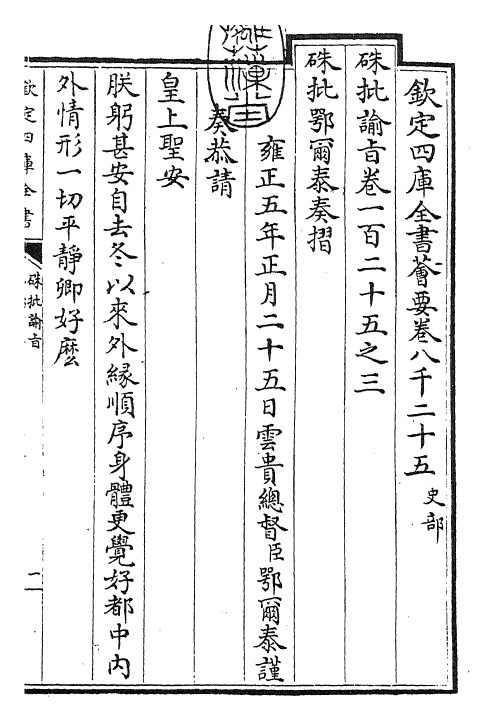 欽定四庫全書薈要卷八千二十五 史部
硃批諭旨卷一百二十五之三
硃批鄂爾泰奏摺
雍正五年正月二十五日雲貴總督臣鄂爾泰謹
奏恭請
皇上聖安
朕躬甚安自去冬以來外緣順序身體更覺好都中內
外情形一切平靜卿好麽
欽定四庫全書
硃批諭旨